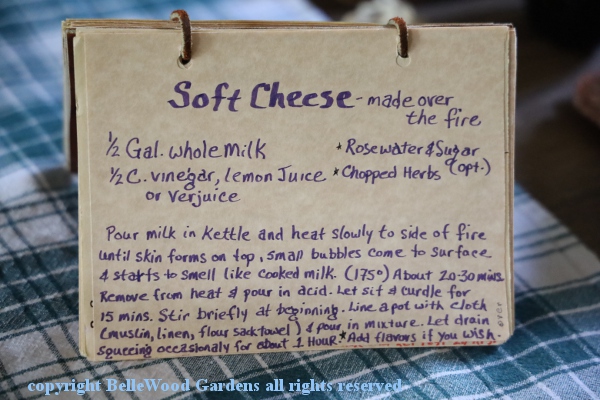 Soft Cheese - made over
the fire
1/2 Gal. whole Milk
1/2 C. vinegar, lemon Juice
or Verjuice
* Rosewater & Sugar
* Chopped Herbs (opt.)
Pour milk in Kettle and heat slowly to side of fire
until skin forms on top, small bubbles come to surface
& starts to smell like cooked milk. (175°) About 20-30 mins.
Remove from heat & pour in acid. Let sit & curdle for
15 mins. Stir briefly at beginning. Line a pot with cloth
(muslin, linen, flour sack towel) & pour in mixture. Let drain
squeezing occasionaly for about 1 Hour * Add flavors if you wish.
copyright BelleWood Gardens all rights reserved